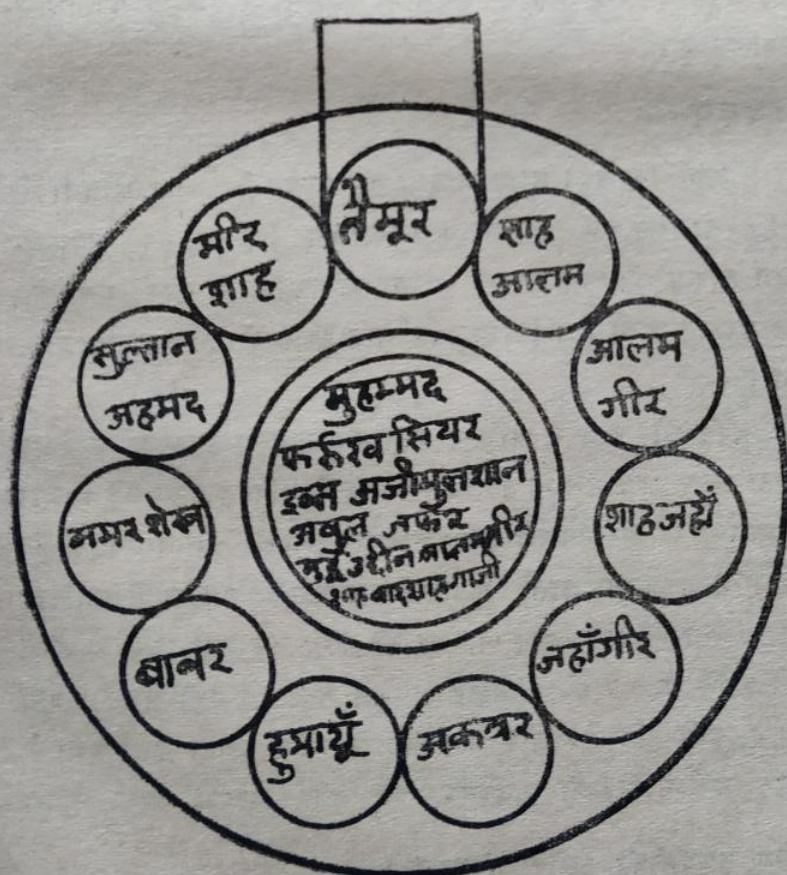 तैमूर
शाह
आलम
आलम
गीर
शाहजहाँ
जहाँगीर
अकबर
हुमायूँ
बाबर
शेख
सुल्तान
अहमद
मीर
शाह
मुहम्मद
फर्रुख सियर
इब्न अजीमुलशान
अबुल जफर
मुई उद्दीन आलमगीर
शाह बादशाह गाजी